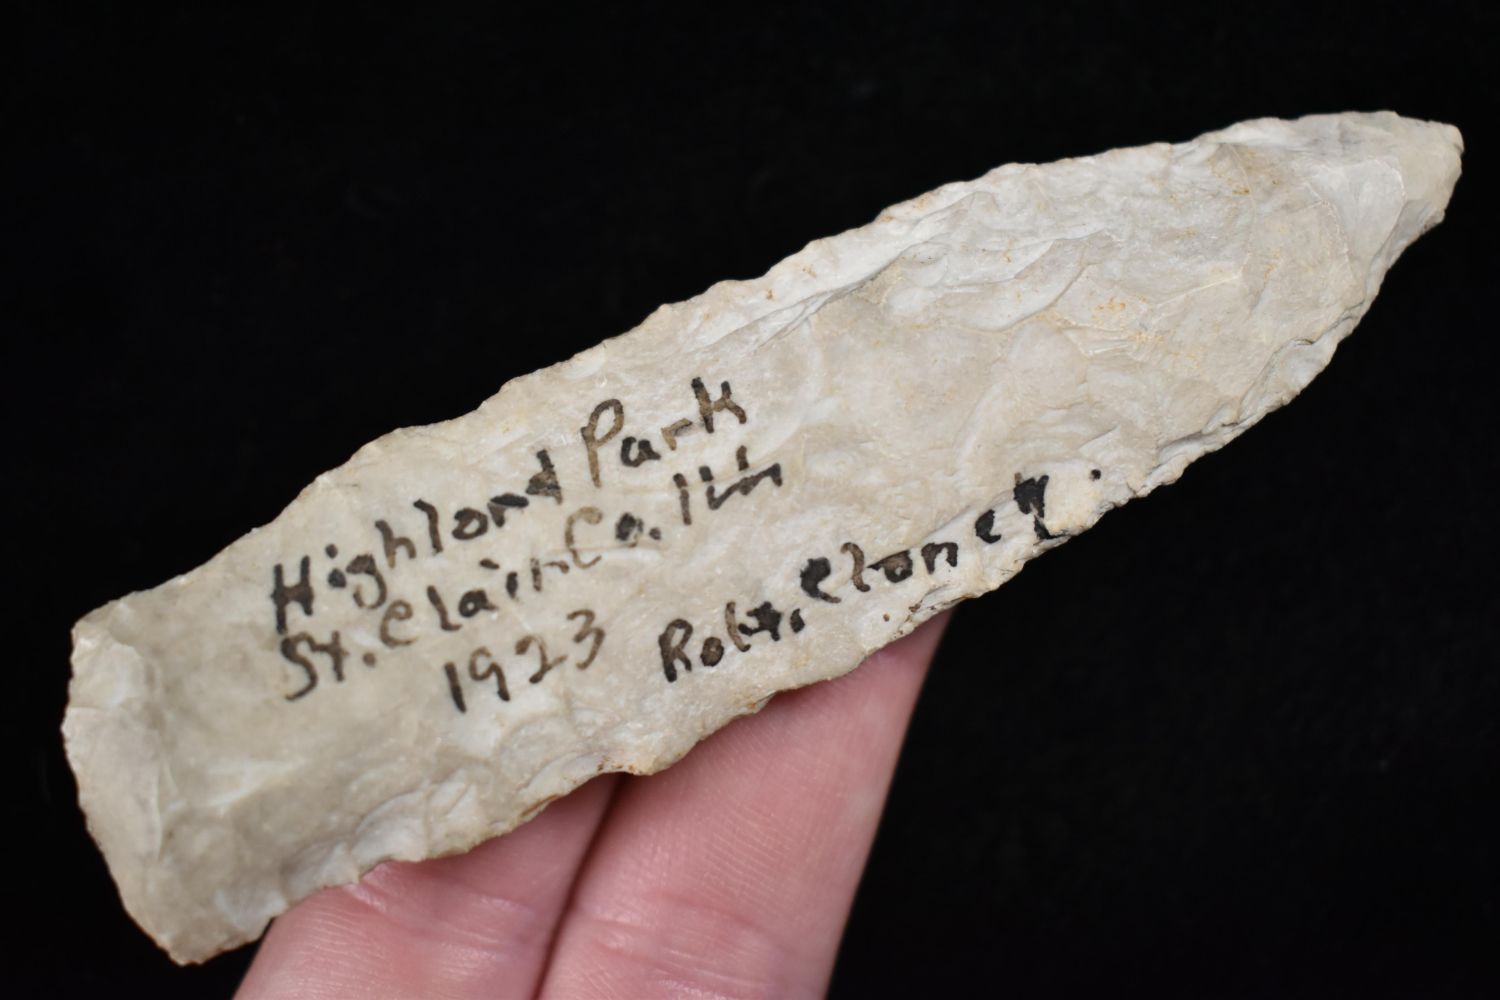 Highland Park
St. Clair Co. Ill.
1923
Robt.